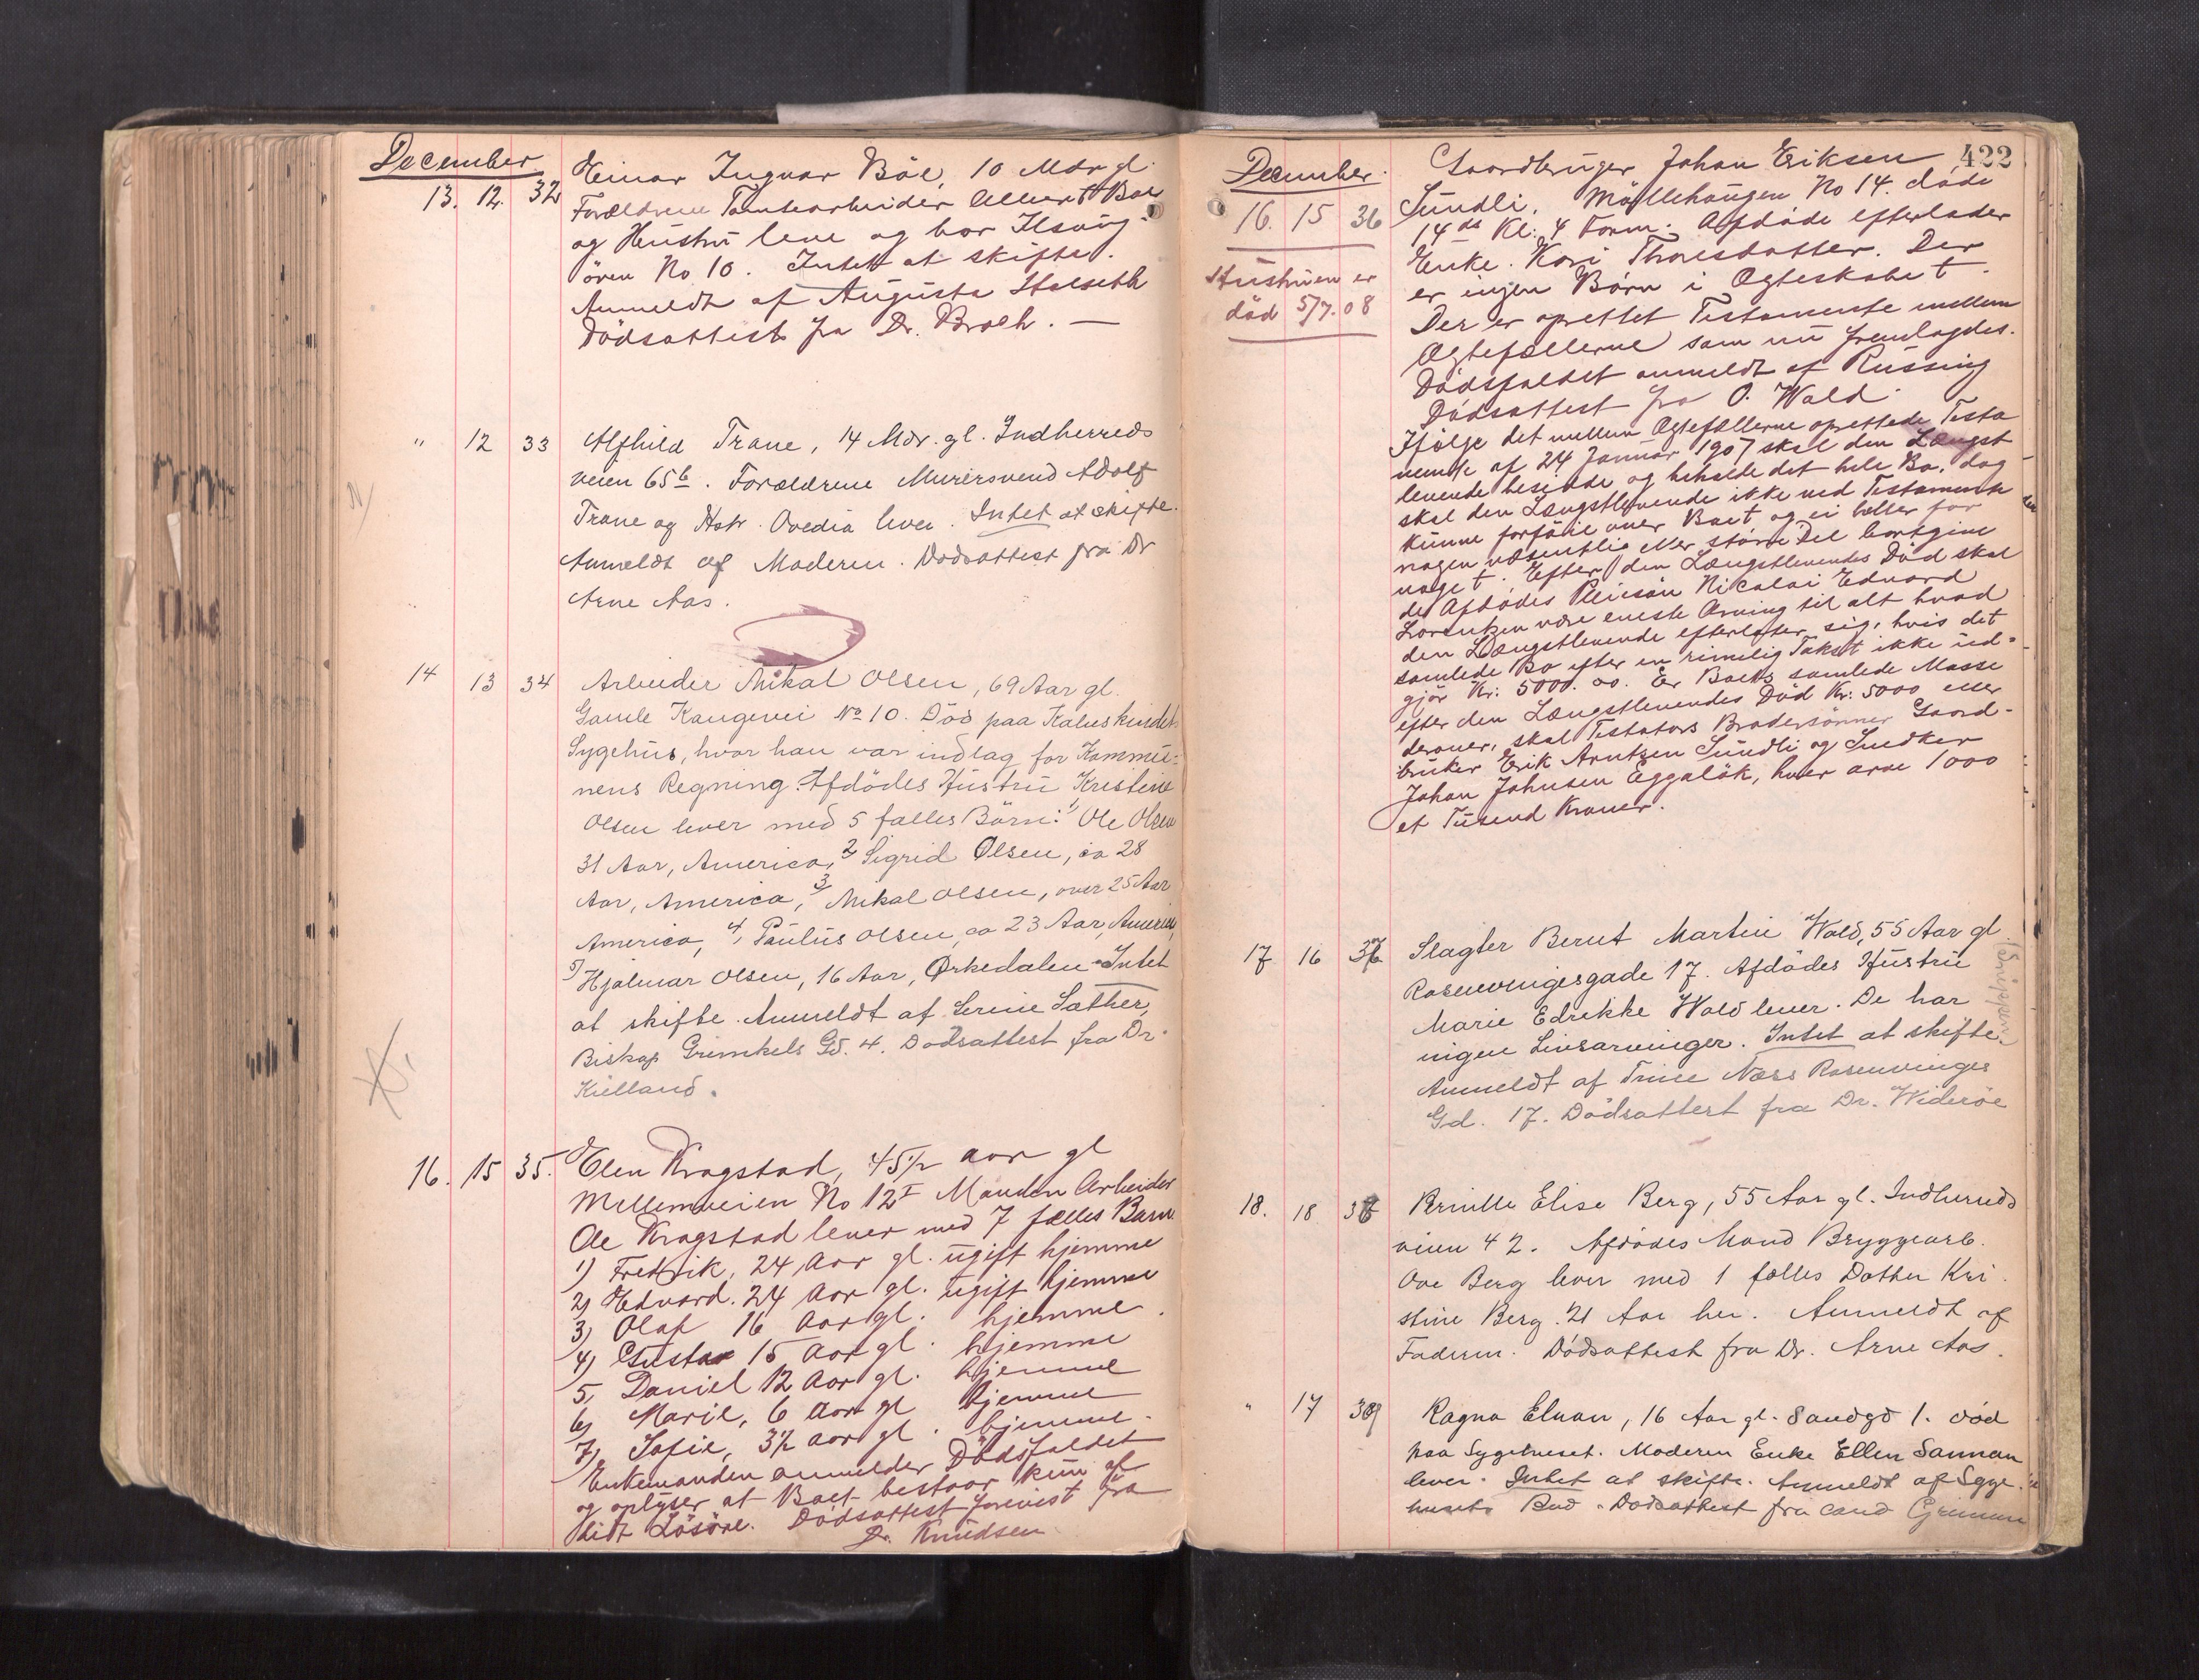 December
13. 12. 32 Einar Ingvar Böe, 10 Mdr gl.
Forældrene Tomtearbeider Albert Böe
og Hustru leve og bor Ilsvig-
ören No 10. Intet at skifte.
Anmeldt af Augusta Stalseth
Dödsattest fra Dr. Broch. —
" 12 33 Alfhild Trane, 14 Mdr. gl. Indherreds
veien 65b. Forældrene Murersvend Adolf
Trane og Hstr. Ovedia lever. Intet at skifte.
Anmeldt af Moderen. Dödsattest fra Dr
Arne Aas.
14 13 34 Arbeider Mikal Olsen, 69 Aar gl.
Gamle Kongevei No 10. Död paa Kalvskindets
Sygehus, hvor han var indlag for Kommu-
nens Regning. Afdödes Hustru Kristine
Olsen lever med 5 fælles Börn: 1, Ole Olsen
31 Aar, America, 2, Sigrid Olsen, ca 28
Aar, America, 3, Mikal Olsen, over 25 Aar
America, 4, Paulus Olsen, ca 23 Aar, America,
5) Hjalmar Olsen, 16 Aar, Orkedalen. Intet
at skifte. Anmeldt af Serine Sæther,
Biskop Grimkels Gd. 4. Dödsattest fra Dr.
Kielland.
16. 15 35. Elen Krogstad, 45 1/2 aar gl
Mellemveien No 12 I Manden Arbeider
Ole Krogstad lever med 7 fælles Barn.
1) Fredrik, 24 Aar gl. ugift hjemme
2) Edvard. 24 Aar gl. ugift hjemme
3) Olaf 16 Aar gl. hjemme.
4) Gustav 15 Aar gl. hjemme
5, Daniel 12 Aar gl. hjemme
6) Marie, 6 Aar gl hjemme
7) Sofie, 3 1/2 aar gl. hjemme.
Enkemanden anmelder Dödsfaldet
og oplyser at Boet bestaar kun af
lidt Lösöre. Dödsattest forevist fra
Dr. Knudsen
422
December.
16. 15 36 Gaardbruger Johan Eriksen
Sundli, Möllehaugen No 14. döde
14de Kl. 4 Form. Afdöde efterlader
Enke. Kari Thoresdatter. Der
er ingen Börn i Ægteskabet.
Hustruen er
död 5/7.08
Der er oprettet Testamente mellem
Ægtefællerne som nu fremlagdes.
Dödsfaldet anmeldt af Russing
Dödsattest fra O. Wald.
Ifölge det mellem Ægtefællerne oprettede Testa
mente af 24 Januar 1907 skal den Længst
levende besidde og beholde det hele Bo, dog
skal den Længstlevende ikke ved Testamente
kunne forföie over Boet og ei heller for
nogen væsentlig eller större Del bortgive
noget. Efter den Længstlevendes Död skal
de Afdödes Pleiesön Nicolai Edvard
Lorentzen være eneste Arving til alt hvad
den Længstlevende efterlater sig, hvis det
samlede Bo efter en rimelig Takst ikke ud-
gjör Kr. 5000.00. Er Boets samlede Masse
efter den Længstlevendes Död Kr. 5000 eller
derover, skal Testators Brodersönner Gaard-
bruker Erik Arntzen Sundli og Snedker
Johan Johnsen Eggalök, hver arve 1000
et Tusend Kroner.
17 16 37 Slagter Bernt Martin Wold, 55 Aar gl.
Rosenvingesgade 17. Afdödes Hustru
Marie Edrikke Wold lever. De har
ingen Livsarvinger. Intet at skifte.
Anmeldt af Trine Næss Rosenvinges
Gd. 17. Dödsattest fra Dr. Wideröe
18. 18 38 Brinille Elise Berg, 55 Aar gl. Indherreds
veien 42. Afdödes Mand Bryggearb.
Ove Berg lever med 1 fælles Datter Kri-
stine Berg. 21 Aar her. Anmeldt af
Faderen. Dödsattest fra Dr. Arne Aas.
" 17 39 Ragna Elvan, 16 Aar gl. Sandgd 1. död
paa Sygehuset. Moderen Enke Ellen Sannan
lever. Intet at skifte. Anmeldt af Syge-
husets Bud. Dödsattest fra cand